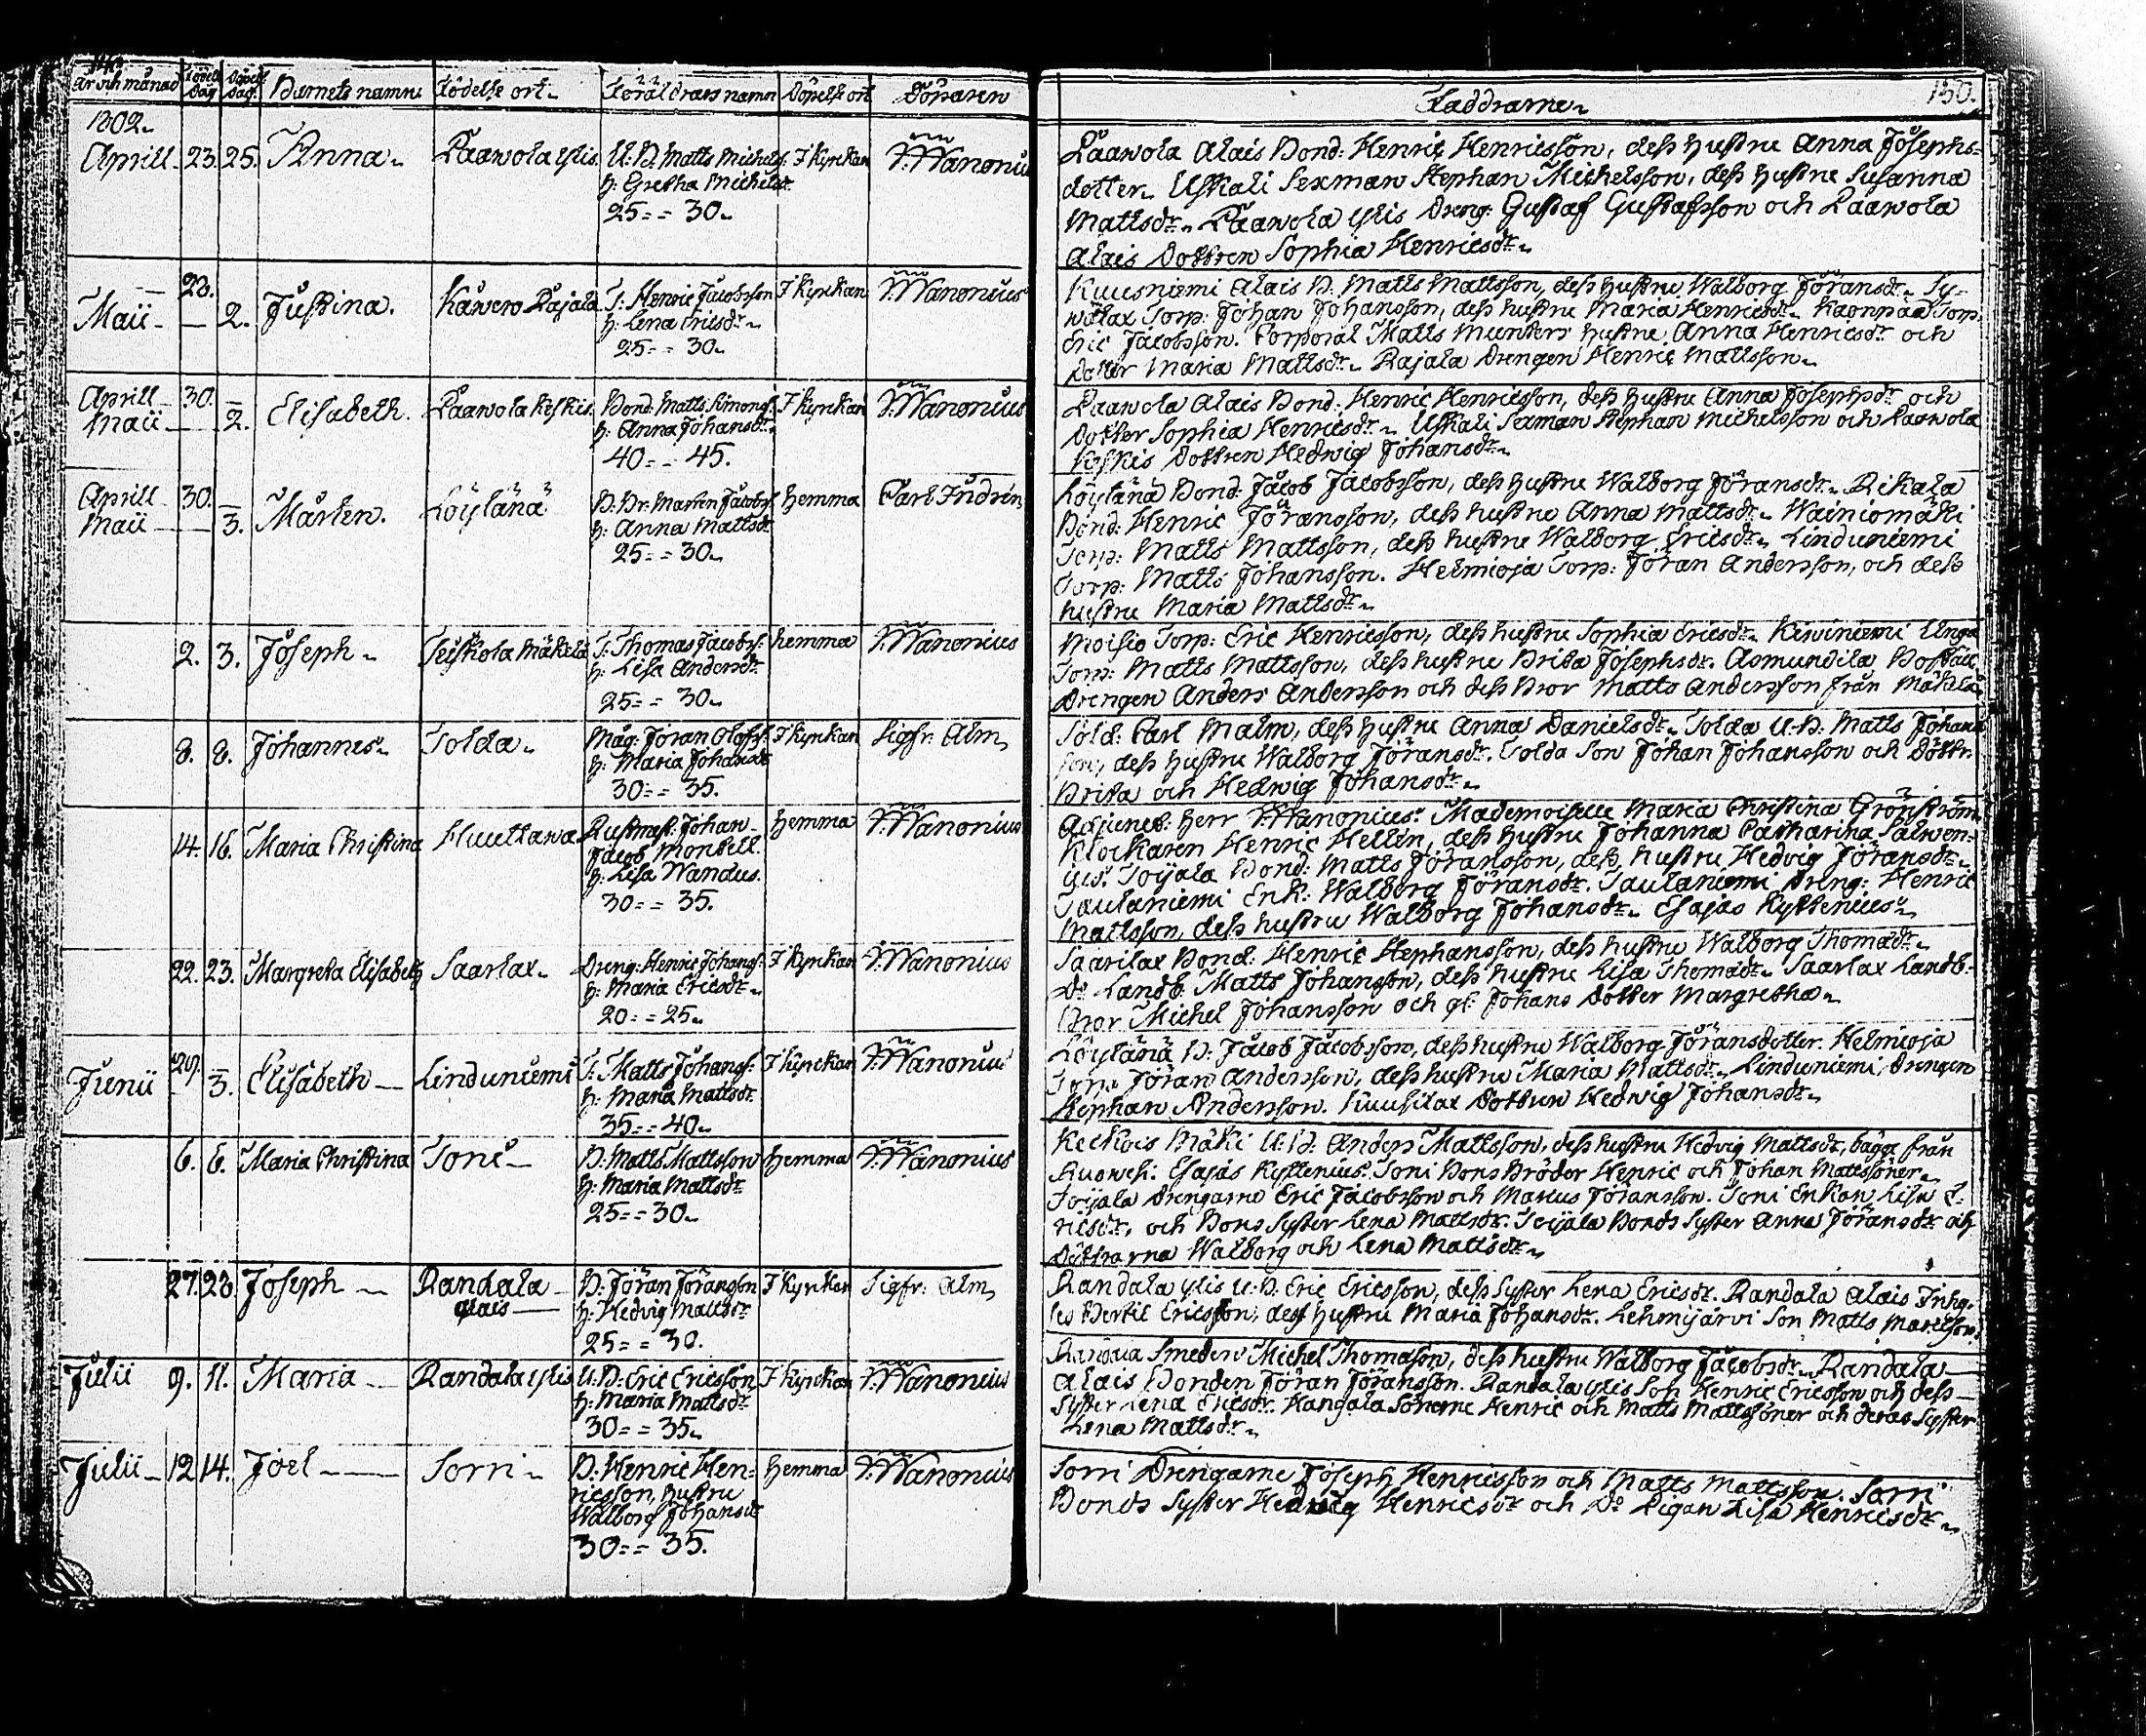 År och månad Födelse Dag Döpelse Dag. Barnets namn Födelse ort Föräldrars namn Döpelse ort Döparen
1802.
Aprill 23. 25. Anna Paawola ylis U: B. Matts Michels. I Kyrkan J. Wanonius
h: Gretha Michelsdr
25 = = 30
28.
Maii 2. Justina. Rajala T: Henric Jacobsson I Kyrkan J. Wanonius
h: Lena Ericsdr
25 = = 30
Aprill 30. Elisabeth. Paawola keskis Bond. Matts Simonss. I Kyrkan J. Wanonius
Maii 2. h: Anna Johansdr
40 = = 45.
Aprill 30. Mårten. Löylänä B. Br. Marten Jacobss. hemma Carl
Maii 3. h: Anna Mattsdr
25 = = 30
2. 3. Joseph Teiskola Mäkelä T: Thomas Jacobss. hemma J. Wanonius
h: Lisa Andersdr
25 = = 30
8. 8. Johannes Tolda Måg: Jöran Olofss. I Kyrkan Sigfr. Alm
h: Maria Johansdr
30 = = 35.
14. 16. Maria Christina Rustmäst. Johan hemma J. Wanonius
Jacob Montell.
h: Lisa Wandus.
30 = = 35.
22. 23. Margreta Elisabeth Saarlax Dreng: Henric Johanss. I Kyrkan J. Wanonius
h: Maria Ericsdr
20 = = 25
29.
Junii 3. Elisabeth Linduniemi T: Matts Johanss. I Kyrkan J. Wanonius
h: Maria Mattsdr
35 = = 40
6. 6. Maria Christina Toni B: Matts Mattsson hemma J. Wanonius
h: Maria Mattsdr
25 = = 30
27. 28. Joseph Randala B: Jöran Jöransson I Kyrkan Sigfr: Alm
alais h: Hedvig Mattsdr
25 = = 30.
Julii 9. 11. Maria Randala ylis U: B: Eric Ericsson I Kyrkan J. Wanonius
h: Maria Mattsdr
30 = = 35
Julii 12 14. Joel Sorri B: Henric Hen- hemma J. Wanonius
ricsson, hustru
Walborg Johansdr
30 = = 35.
Faddrarne 150.
Paawola Alais Bond: Henric Henricsson, dess hustru Anna Josephs=
dotter Uskali Sexman Stephan Michelsson, dess hustru Susanna
Mattsdr Paawola ylis Dreng: Gustaf Gustafsson och Paawola
Alais Dottren Sophia Henricsdr
Kuusniemi Alais B. Matts Mattsson, dess hustru Walborg Jöransdr Sy-
wälax Torp: Johan Johansson, dess hustru Maria Henricsdr Torp:
Eric Jacobsson. Corporal Matts Munters hustru Anna Henricsdr och
Dotter Maria Mattsdr Rajala Drengen Henric Mattsson
Paawola Alais Bond: Henric Henricsson, dess hustru Anna Josephsdr och
Dotter Sophia Henricsdr Uskali Sexman Stephan Michelsson och Paawola
Keskis Dottren Hedwig Johansdr
Löylänä Bond: Jacob Jacobsson, dess hustru Walborg Jöransdr Rikala
Bond: Henric Jöransson, dess hustru Anna Mattsdr Wainiomäki
Torp: Matts Mattsson, dess hustru Walborg Ericsdr Linduniemi
Torp: Matts Johansson. Helmioja Torp: Jöran Andersson, och dess
hustru Maria Mattsdr
Moisio Torp: Eric Henricsson, dess hustru Sophia Ericsdr Kiwiniemi Unga
Torp: Matts Mattsson, dess hustru Brita Josephsdr. Asmundila
Drengen Anders Andersson och dess Bror Matts Andersson från Mäkelä
Sold: Carl Malm, dess hustru Anna Danielsdr Tolda U: B. Matts Johans
son, dess hustru Walborg Jöransdr. Tolda Son Johan Johansson och Döttr.
Brita och Hedwig Johansdr
Adjunct: Herr J. Wanonius. Mademoiselle Maria Christina Grönström
Klockaren Henric Hellén, dess hustru Johanna Catharina Salwen=
ius. Toijala Bond: Matts Jöransson, dess hustru Hedvig Jöransdr
Taulaniemi Enk: Walborg Jöransdr. Taulaniemi Dreng: Henric
Mattsson, dess hustru Walborg Johansdr Esajas Kyttenius
Saarilax Bond: Henric Stephansson, dess hustru Walborg Thomsdr
Do Landb: Matts Johansson, dess hustru Lisa Thomsdr Saarlax Landb:
Bror Michel Johansson och gl: Johans Dotter Margretha
Löylänä B: Jacob Jacobsson, dess hustru Walborg Jöransdotter. Helmioja
Torp: Jöran Andersson, dess hustru Maria Mattsdr Linduniemi Drengen
Stephan Andersson. Kuusilax Dottren Hedwig Johansdr
Mäki U: B: Anders Mattsson, dess hustru Hedvig Mattsdr, bägge från
Ruowesi. Esajas Kyttenius. Toni Bonds Bröder Henric och Johan Mattssöner
Toijala Drengarne Eric Jacobsson och Marcus Jöransson. Toni Enkan Lisa E-
ricsdr, och Bonds Syster Lena Mattsdr. Toijala Bonds Syster Anna Jöransdr och
Döttrarna Walborg och Lena Mattsdr
Randala ylis U: B. Eric Ericsson, dess Syster Lena Ericsdr. Randala Alais Inhy-
ses Bertil Ericsson, dess hustru Maria Johansdr. Lehmijärvi Son Matts
Smeden Michel Thomasson, dess hustru Walborg Jacobsdr Randala
Alais Bonden Jöran Jöransson. Randala ylis Son Henric Ericsson och dess
Syster Lena Ericsdr. Hangala Sönerne Henric och Matts Mattssöner och deras Syster
Lena Mattsdr
Sorri Drengarne Joseph Henricsson och Matts Mattsson. Sorri
Bonds Syster Hedwig Henricsdr och Do Pigan Lisa Henricsdr